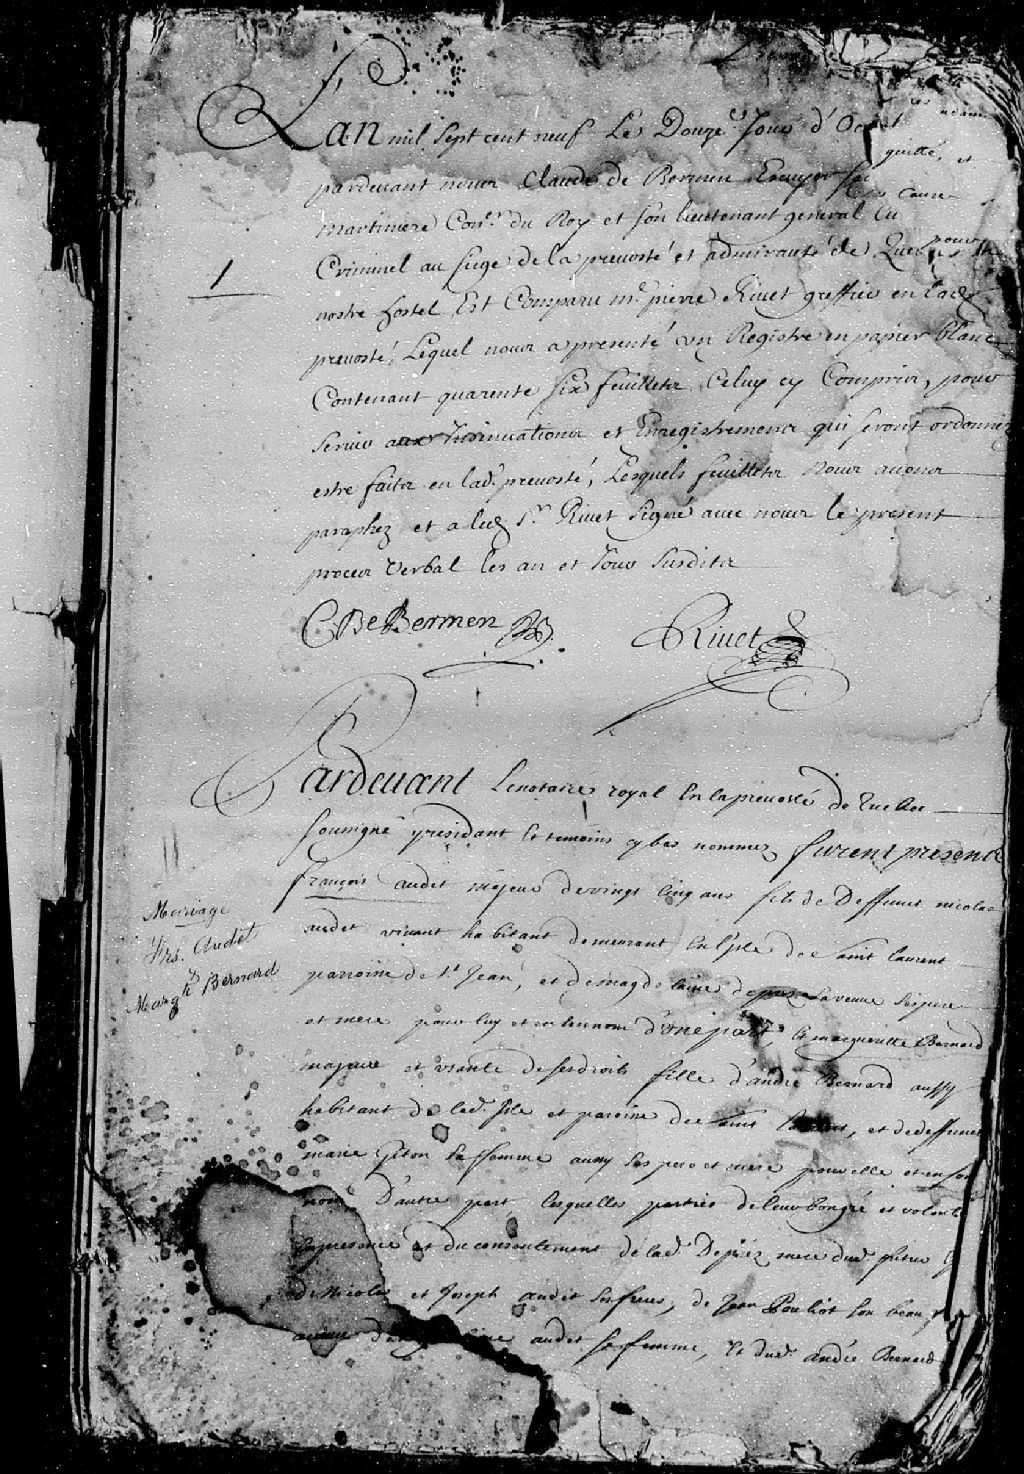 L'an mil sept cent neuf Le Douze.e Jour d'Oct
pardevant nous Claude de Bermen Ecuyer
martiniere Con.er du Roy et son lieutenant general
Criminel au siege de la prevosté et admirauté de Que
nostre hostel Est Comparu m.e pierre Rivet greffier en lad.
prevosté, Lequel nous a presenté un Registre en papier blanc
Contenant quarente six feuillets Celuy cy Compris, pour
servir aux Insinuations et Enregistrements qui seront ordonnez
estre faits en lad. prevosté, Lesquels feuillets Nous avons
paraphez et a led S.r Rivet signé avec nous le present
proces verbal les an et Jour susdits
CDeBermen
Rivet
1
Pardevant Le notaire royal En la prevosté de Quebec
soussigné residant Et temoins cy bas nommez furent presents
françois audet majeur de vingt Cinq ans fils de Deffunct nicolas
audet vivant habitant demeurant En l'Isle de saint laurent
parroisse de S.t Jean, et de magdelaine despres sa veuve ses pere
et mere pour luy et en son nom d'une part, Et marguerite Bernard
majeure et usante de ses droits fille d'andré Bernard aussy
habitant de lad. Isle et paroisse de saint laurent, et de deffunct
marie Giton sa femme aussy ses pere et mere pour elle et en son
nom D'autre part, lesquelles parties de leur bon gré et volonté
la presence et du consentement de lad. Desprez mere dud. futur
de Nicolas et Joseph audet ses freres, de Jean Pouliot son beau f
audet sa femme, Et dud. andré Bernard
Mariage
Frs. Audet
Marg.te Bernard
quitté, et
pour